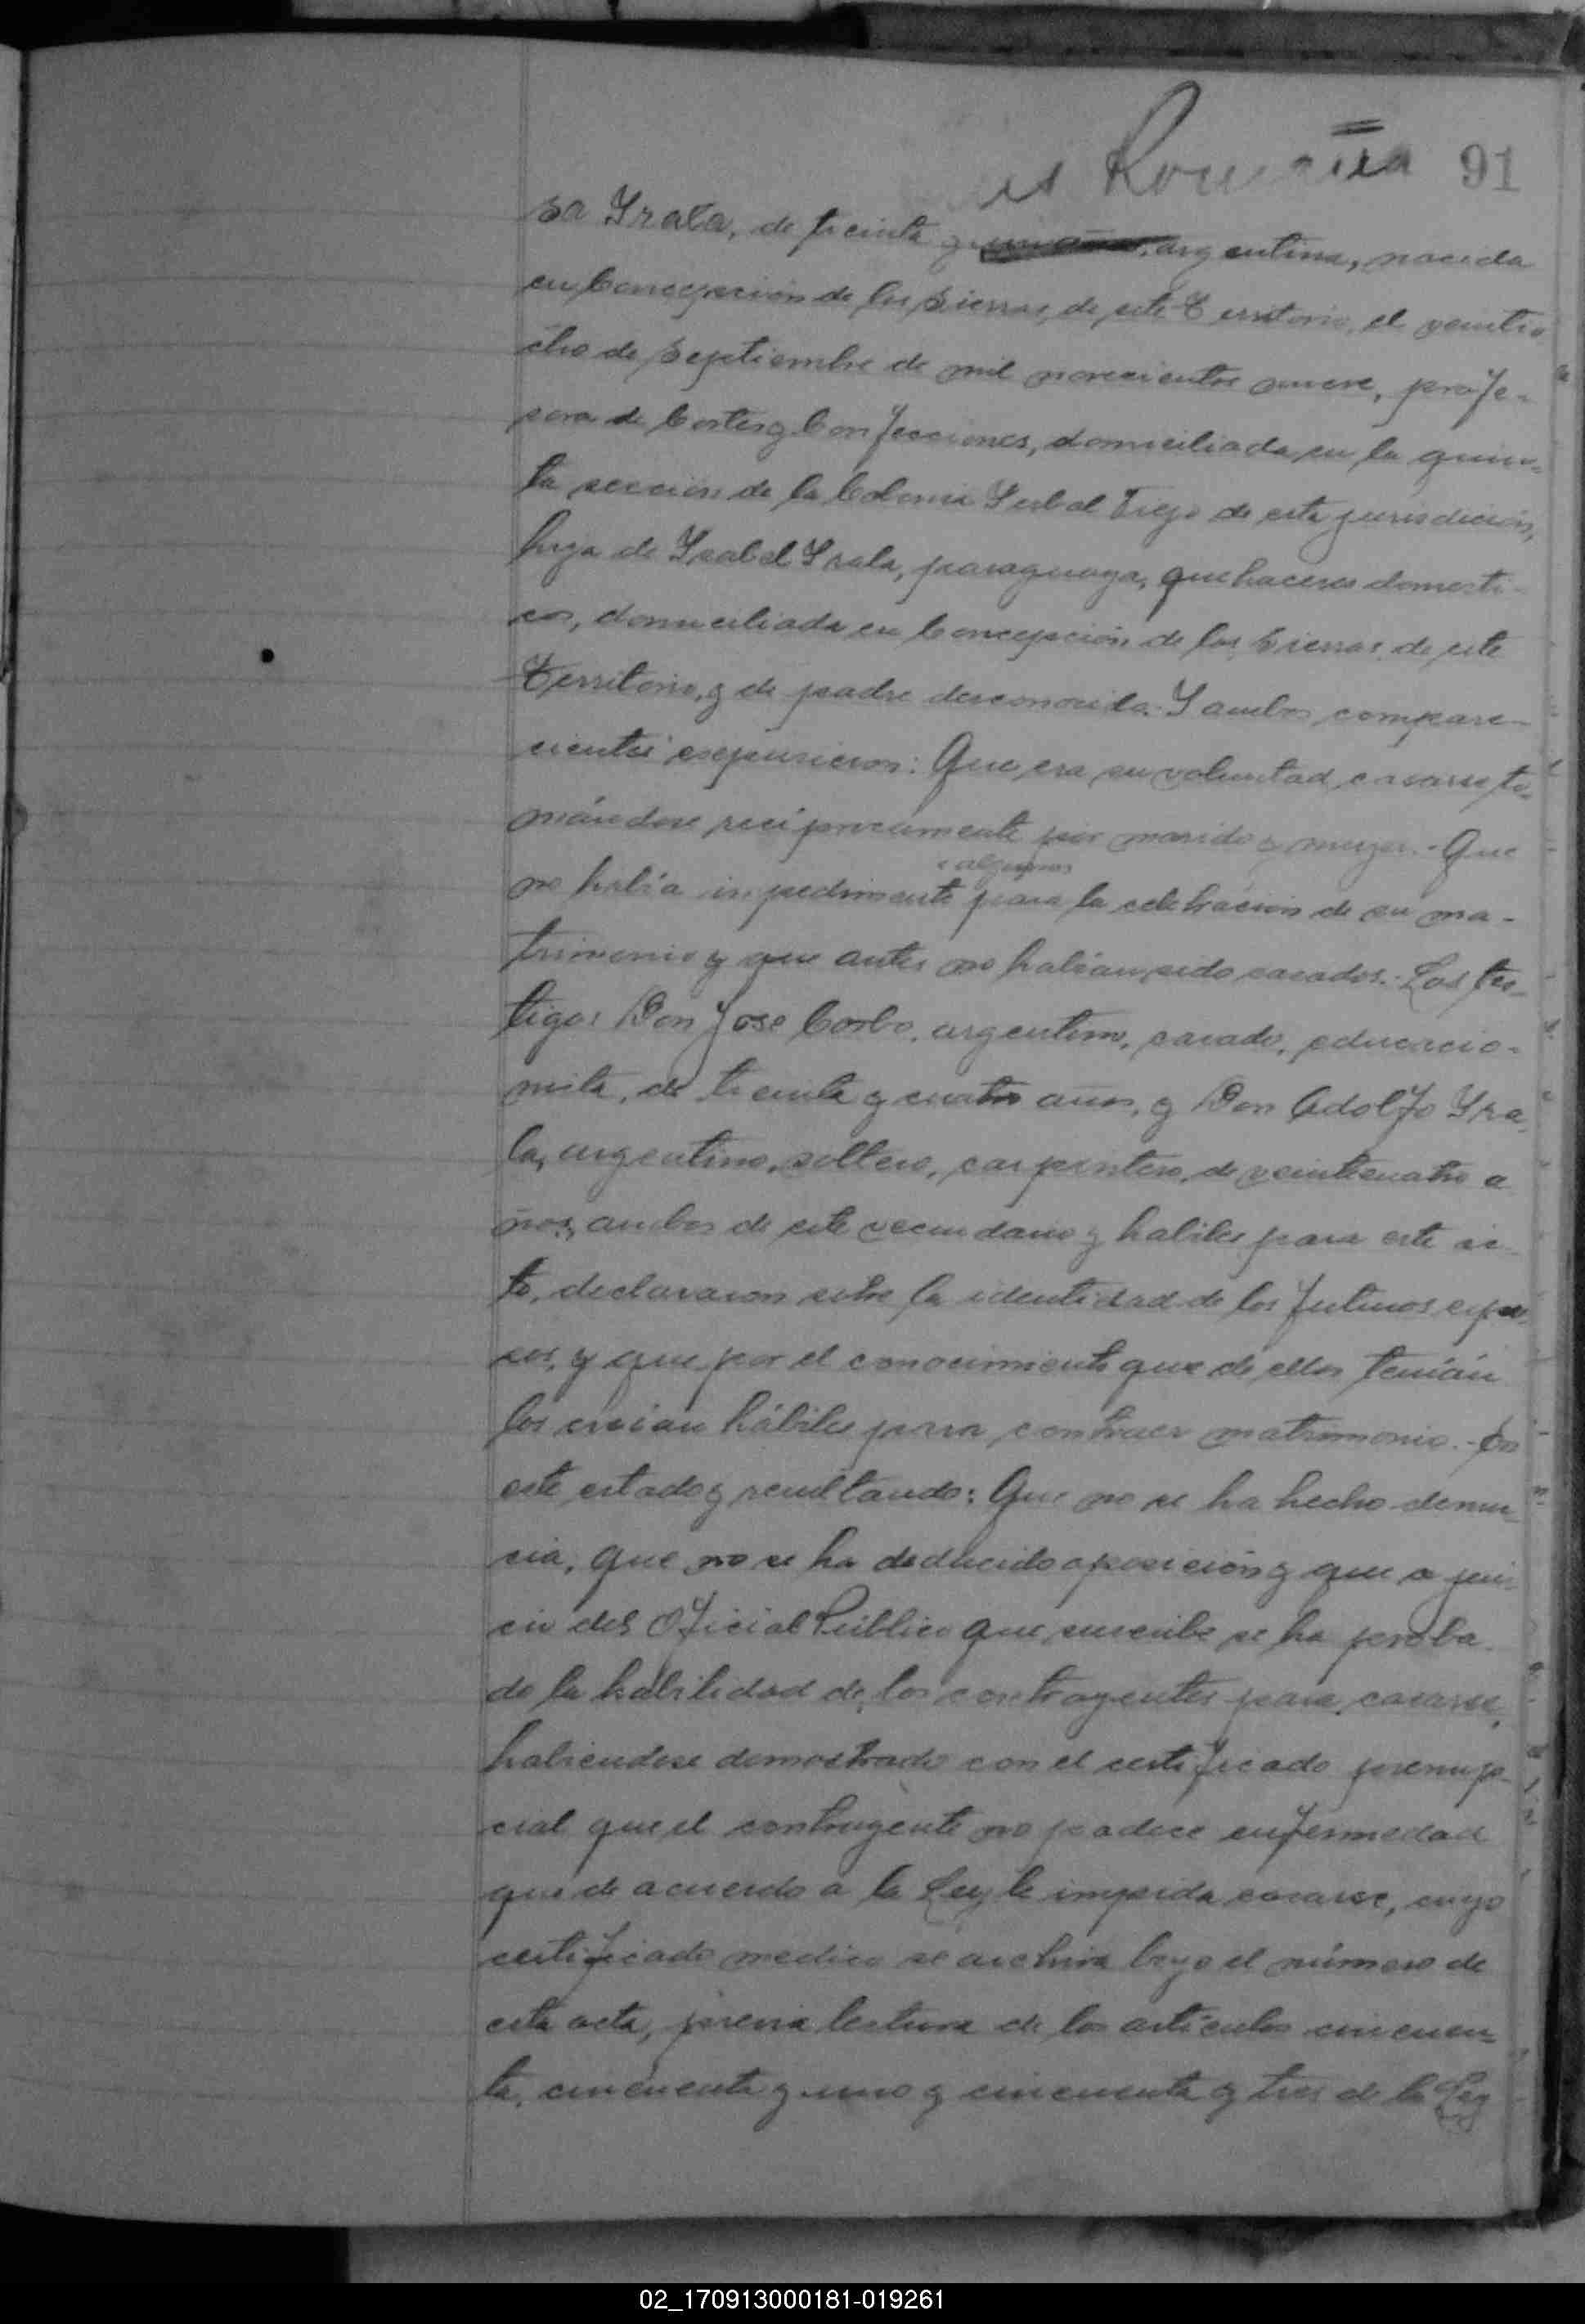 91
sa Yrala, de treinta y argentina, nacida
en Concepción de las Sierras, de este Territorio, el veintio
cho de Septiembre de mil novecientos nueve, profe-
sora de Cortes y Confecciones, domiciliada en la quin-
ta sección de la Colonia Yerbal Viejo de esta jurisdicción,
hija de Ysabel Yrala, paraguaya, quehaceres domesti-
cos, domiciliada en Concepción de las Sierras, de este
Territorio, y de padre desconocido. Y ambos compare-
cientes expusieron: Que era su voluntad casarse to-
mándose recíprocamente por marido y mujer.- Que
algunos
no había impedimento para la celebración de su ma-
trimonio y que antes no habían sido casados.- Los tes-
tigos Don José Corbo, argentino, casado, educacio-
nista, de treinta y cuatro años, y Don Adolfo Yra-
la, argentino, soltero, carpintero, de veinticuatro a
ños, ambos de este vecindario y habiles para este ac-
to, declararon sobre la identidad de los futuros espo-
sos, y que por el conocimiento que de ellos tenían
los creían hábiles para contraer matrimonio.- En
este estado y resultando: Que no se ha hecho denun-
cia, que no se ha deducido oposición y que a jui-
cio del Oficial Público que suscribe se ha proba-
do la habilidad de los contrayentes para casarse,
habiendose demostrado con el certificado prenup-
cial que el contrayente no padece enfermedad
que de acuerdo a la Ley le impida casarse, cuyo
certificado medico se archiva bajo el número de
esta acta, previa lectura de los artículos cincuen-
ta, cincuenta y uno y cincuenta y tres de la Ley
02_170913000181-019261